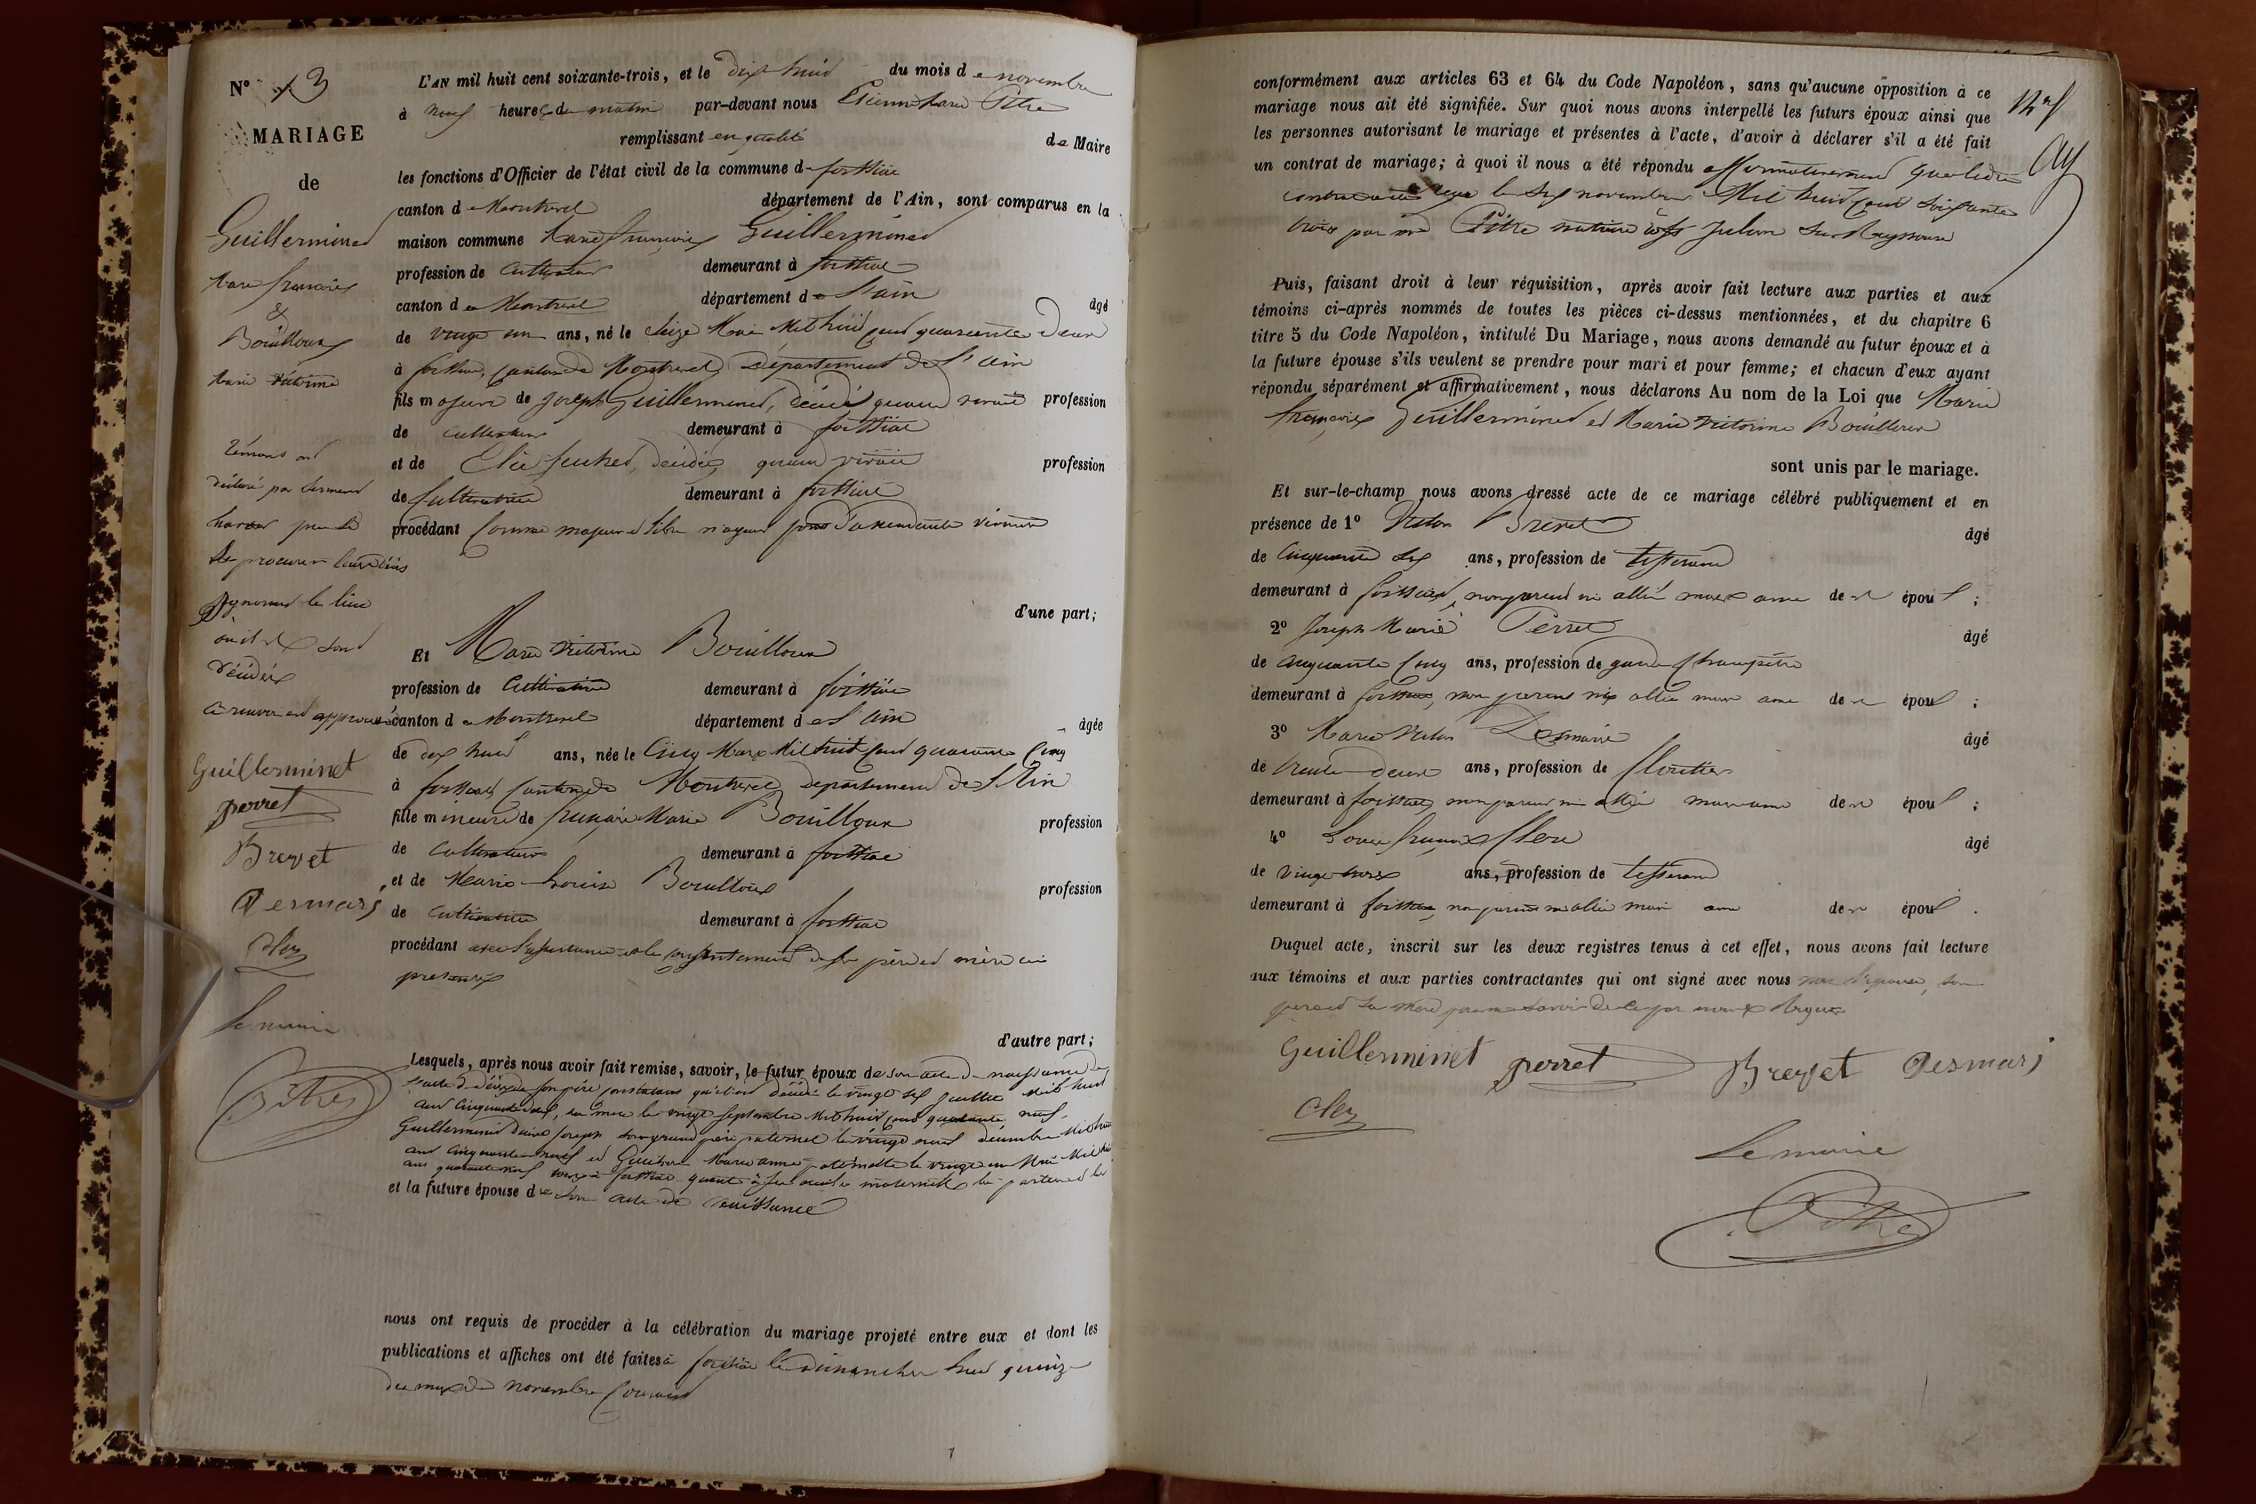 N° 13
MARIAGE
de
Guillerminet
Marie françois
&
Bouilloux
Marie Victorine
témoins ont
déclaré par serment
Ignorant le lieu
où ils sont
décédés
Guillerminet
perret
Brevet
Desmaris
Cler
Le maire
Pitre
L'AN mil huit cent soixante-trois, et le dix huit du mois de novembre
à neuf heures du matin par-devant nous Etienne Marie Pitre
remplissant en qualité de Maire
les fonctions d'Officier de l'état civil de la commune de foissiat
canton de Montrevel département de l'Ain, sont comparus en la
maison commune Marie françois Guillerminet
profession de Cultivateur demeurant à foissiat
canton de Montrevel département de l'ain âgé
de vingt un ans, né le Seize Mai Mil huit cent quarante Deux
à foissiat, Canton de Montrevel Département de l'Ain
fils majeur de Joseph Guillerminet, décédé quand vivait profession
de cultivateur demeurant à foissiat
et de décédée, quand vivait profession
de Cultivatrice demeurant à foissiat
procédant Comme majeur et libre n'ayant point d'ascendants vivants
d'une part;
Et Marie Victorine Bouilloux
profession de Cultivatrice demeurant à foissiat
canton de Montrevel département de l'Ain âgée
de dix huit ans, née le Cinq Mars Mil huit cent quarante Cinq
à foissiat, Canton de Montrevel département de l'Ain
fille mineure de françois Marie Bouilloux profession
de Cultivateur demeurant à foissiat
et de Marie Louise Bouilloux profession
de Cultivatrice demeurant à foissiat
procédant avec l'assistance et le consentement de ses père et mère ici
présents
d'autre part;
Lesquels, après nous avoir fait remise, savoir, le futur époux de son acte de naissance de
l'acte de décès de son père constatant qu'il est décédé le vingt six Juillet mil huit
sa mère le vingt septembre Mil huit cent quarante neuf
Guillerminet Joseph son grand père paternel le vingt neuf décembre Mil huit
cent cinquante neuf et Marie anne paternelle le vingt un Mai Mil huit
et la future épouse de son acte de naissance
nous ont requis de procéder à la célébration du mariage projeté entre eux et dont les
publications et affiches ont été faites à foissiat les dimanches huit quinze
du mois de novembre Courant
conformément aux articles 63 et 64 du Code Napoléon, sans qu'aucune opposition à ce
mariage nous ait été signifiée. Sur quoi nous avons interpellé les futurs époux ainsi que
les personnes autorisant le mariage et présentes à l'acte, d'avoir à déclarer s'il a été fait
un contrat de mariage; à quoi il nous a été répondu affirmativement que ledit
contrat a été reçu le six novembre Mil huit cent soixante
trois par me Pitre notaire à St Julien sur Reyssouze
Puis, faisant droit à leur réquisition, après avoir fait lecture aux parties et aux
témoins ci-après nommés de toutes les pièces ci-dessus mentionnées, et du chapitre 6
titre 5 du Code Napoléon, intitulé Du Mariage, nous avons demandé au futur époux et à
la future épouse s'ils veulent se prendre pour mari et pour femme; et chacun d'eux ayant
répondu séparément et affirmativement, nous déclarons Au nom de la Loi que Marie
françois Guillerminet et Marie Victorine Bouilloux
sont unis par le mariage.
Et sur-le-champ nous avons dressé acte de ce mariage célébré publiquement et en
présence de 1° Brevet âgé
de Cinquante six ans, profession de tisserand
demeurant à foissiat, non parent ni allié mais ami de l' époux;
2° Joseph Marie Perret âgé
de Cinquante Cinq ans, profession de garde Champêtre
demeurant à foissiat, non parent ni allié mais ami de l' époux;
3° Marie Desmaris âgé
de trente deux ans, profession de
demeurant à foissiat, non parent ni allié mais ami de l' époux;
4° Clere âgé
de vingt trois ans, profession de tisserand
demeurant à foissiat, non parent ni allié mais ami de l' époux.
Duquel acte, inscrit sur les deux registres tenus à cet effet, nous avons fait lecture
aux témoins et aux parties contractantes qui ont signé avec nous non l'épouse, son
père et sa mère pour ne savoir de ce par nous requis
Guillerminet perret Brevet Desmaris
Cler
Le maire
Pitre